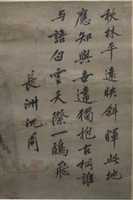 秋林平遠映斜暉此地
應知與世違獨抱古桐誰
与語白雲天際一鴻飛
長洲沈周